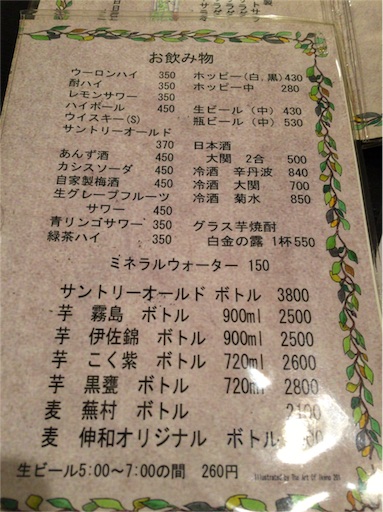 お飲み物
ウーロンハイ 350
酎ハイ 350
レモンサワー 350
ハイボール 450
ウイスキー(S)
サントリーオールド
370
あんず酒 450
カシスソーダ 450
自家製梅酒 450
生グレープフルーツ
サワー 450
青リンゴサワー 350
緑茶ハイ 350
ホッピー(白,黒) 430
ホッピー中 280
生ビール (中) 430
瓶ビール (中) 530
日本酒
大関 2合 500
冷酒 辛丹波 840
冷酒 大関 700
冷酒 菊水 850
グラス芋焼酎
白金の露 1杯550
ミネラルウォーター 150
サントリーオールド ボトル 3800
芋 霧島 ボトル 900ml 2500
芋 伊佐錦 ボトル 900ml 2500
芋 こく紫 ボトル 720ml 2600
芋 黒甕 ボトル 720ml 2800
麦 蕪村 ボトル
麦 伸和オリジナル ボトル
生ビール5:00～7:00の間 260円
Illustrated by The Art Of